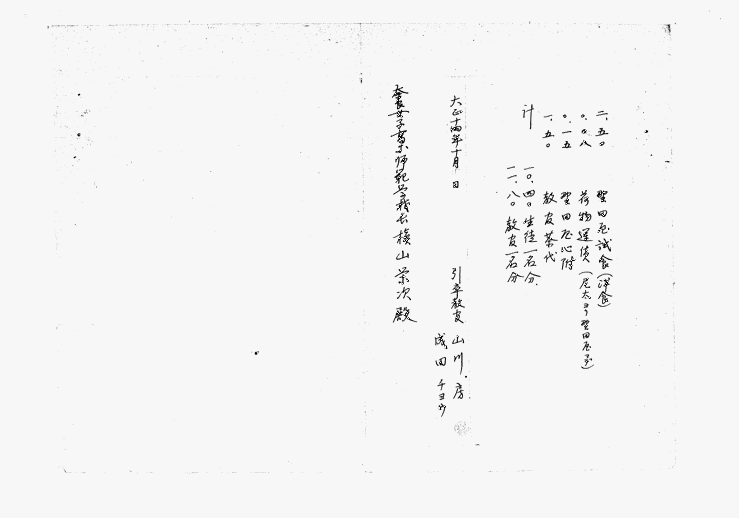 二、五〇 野田屋試食(洋食)
〇、〇八 荷物運賃(尾太ヨリ野田屋マデ)
〇、一五 野田屋心附
一、五〇 教官茶代
計 一〇、四〇 生徒一名分
一一、八〇 教官一名分
大正十四年十月 日
引率教官 山川 房
成田 チヨウ
奈良女子高等師範学校長 槇山栄次殿